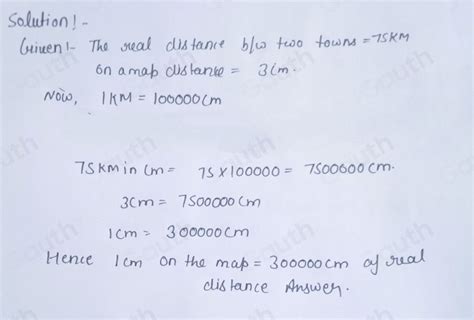 Solution!-
Given!- The real distance b/w two towns = 75KM
on a map distance = 3cm.
Now, 1KM = 100000cm
75KM in cm = 75X100000 = 7500000cm.
3cm = 7500000cm
1cm = 300000cm
Hence 1cm on the map = 300000cm of real
distance Answer.